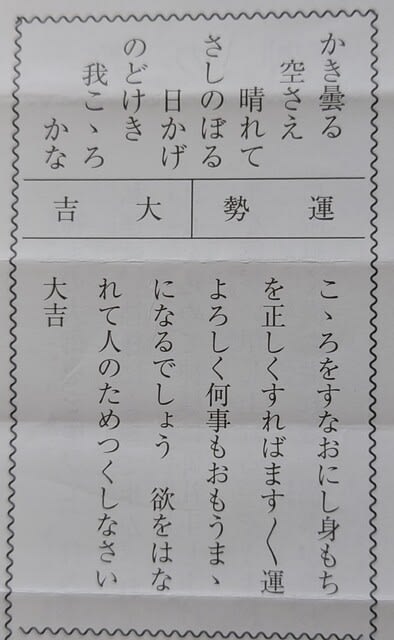 かき曇る
空さえ
晴れて
さしのぼる
日かげ
のどけき
我こゝろ
かな
運勢
大吉
こゝろをすなおにし身もち
を正しくすればます〱運
よろしく何事もおもうまゝ
になるでしょう　欲をはな
れて人のためつくしなさい
大吉